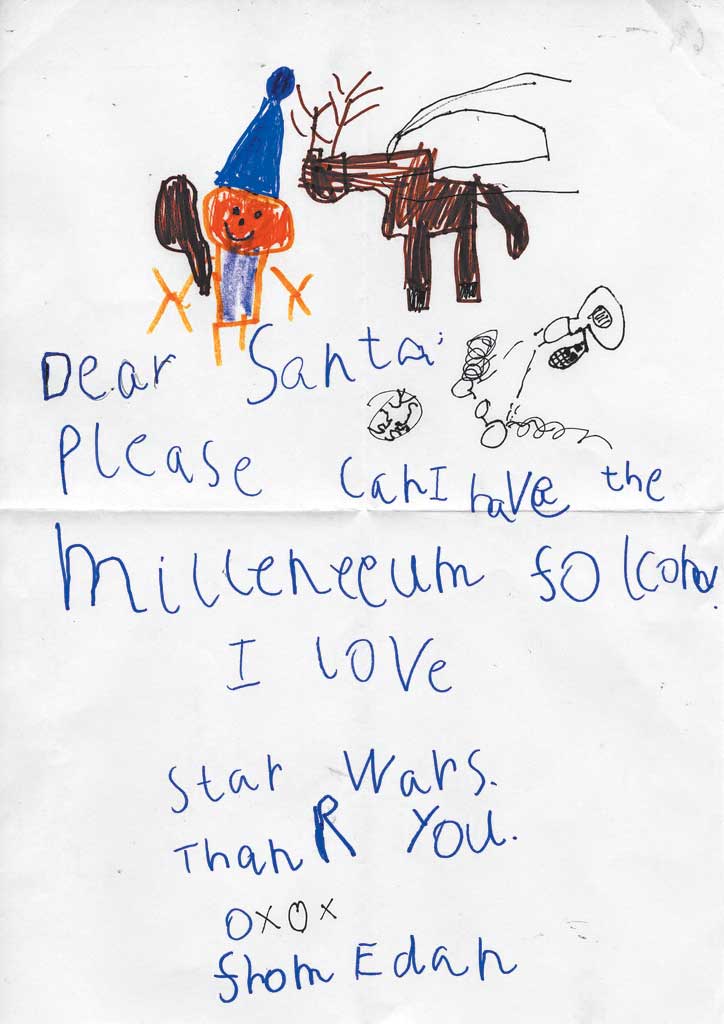 Dear Santa
please can I have the
milleneeum folcon.
I love
Star Wars.
Thank you.
oxox
from Edan